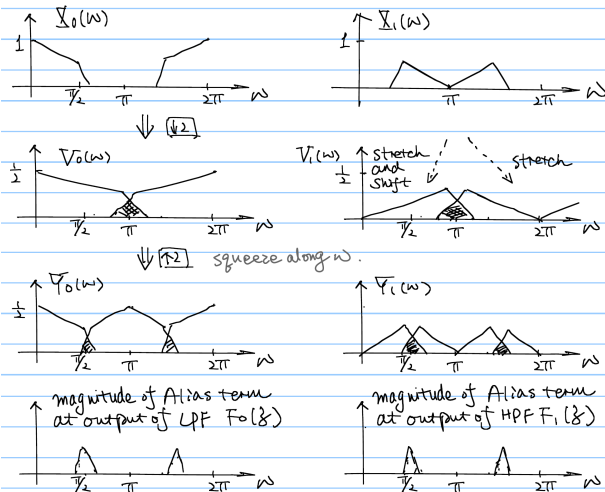 X₀(ω)
1
π/2 π 2π ω
X₁(ω)
1
π 2π ω
⇓ ↓2
V₀(ω)
1/2
π/2 π 2π ω
V₁(ω)
1/2
stretch
and
shift
stretch
π/2 π 2π ω
⇓ ↑2 squeeze along ω.
Y₀(ω)
1/2
π/2 π 2π ω
Y₁(ω)
π/2 π 2π ω
magnitude of Alias term
at output of LPF F₀(z)
π/2 π 2π ω
magnitude of Alias term
at output of HPF F₁(z)
π/2 π 2π ω